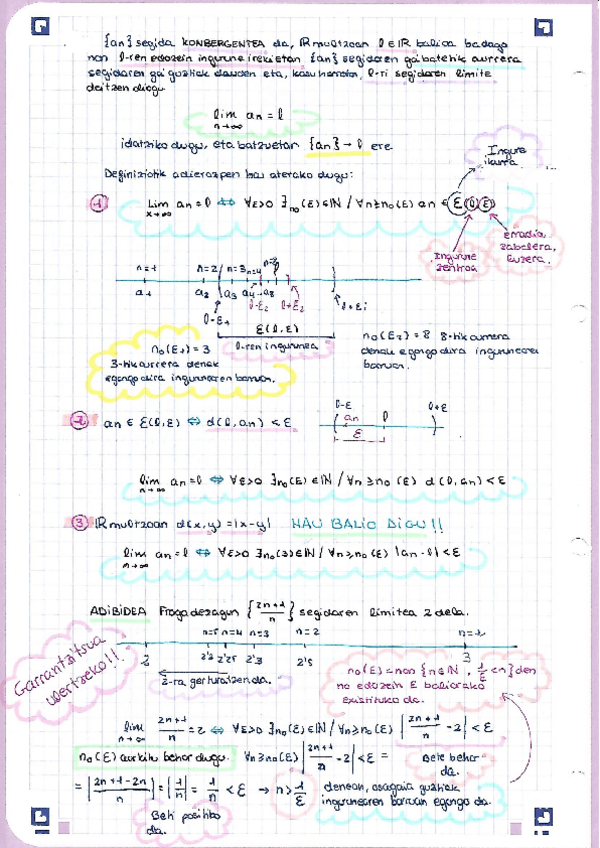 {an} segida KONBERGENTEA da, IR multzoan l∈IR balioa badago
non l-ren edozein ingurune irekietan {an} segidaren gai batetik aurrera
segidaren gai guztiak dauden eta, kasu horretan, l-ri segidaren limite
deitzen diogu
lim an = l
n→∞
idatziko dugu, eta batzuetan {an} → l ere.
Ingurune
ikurra.
Definiziotik adierazpen hau aterako dugu:
1 Lim an = l ⇔ ∀ε>0 ∃n₀(ε)∈IN / ∀n≥n₀(ε) an ∈ E(l,ε)
x→∞
Ingurune
zentroa
Erradioa,
zabalera,
luzera.
n=1 n=2 n=3 n=4 n=8
a₁ a₂ a₃ a₄ a₈
l-ε₂ l+ε₂
l-ε₁ l+ε₁
E(l,ε)
l-ren ingurunea
n₀(ε₁) = 3
3-tik aurrera denak
egongo dira ingurunearen barruan.
n₀(ε₂) = 8 8-tik aurrera
denak egongo dira ingurunearen
barruan.
2 an ∈ E(l,ε) ⇔ d(l,an) < ε
l-ε an l l+ε
ε
lim an = l ⇔ ∀ε>0 ∃n₀(ε)∈IN / ∀n≥n₀(ε) d(l,an) < ε
n→∞
3 IR multzoan d(x,y) = |x-y| HAU BALIO DIGU!!
lim an = l ⇔ ∀ε>0 ∃n₀(ε)∈IN / ∀n≥n₀(ε) |an-l| < ε
n→∞
ADIBIDEA Froga dezagun {2n+1/n} segidaren limitea 2 dela.
n=5 n=4 n=3 n=2 n=1
2 2'2 2'25 2'3 2'5 3
2-ra gerturatzen da.
Garrantzitsua
ulertzeko!!
n₀(ε) = non {n∈IN, 1/ε < n} den
no edozein ε baliorako
existituko da.
lim 2n+1/n = 2 ⇔ ∀ε>0 ∃n₀(ε)∈IN / ∀n≥n₀(ε) |2n+1/n - 2| < ε
n→∞
n₀(ε) aurkitu behar dugu. ∀n≥n₀(ε) |2n+1/n - 2| < ε =
Bete behar
da.
= |2n+1-2n/n| = |1/n| = 1/n < ε → n > 1/ε denean, osagaia guztiak
ingurunearen barruan egongo da.
Beti positibo
da.